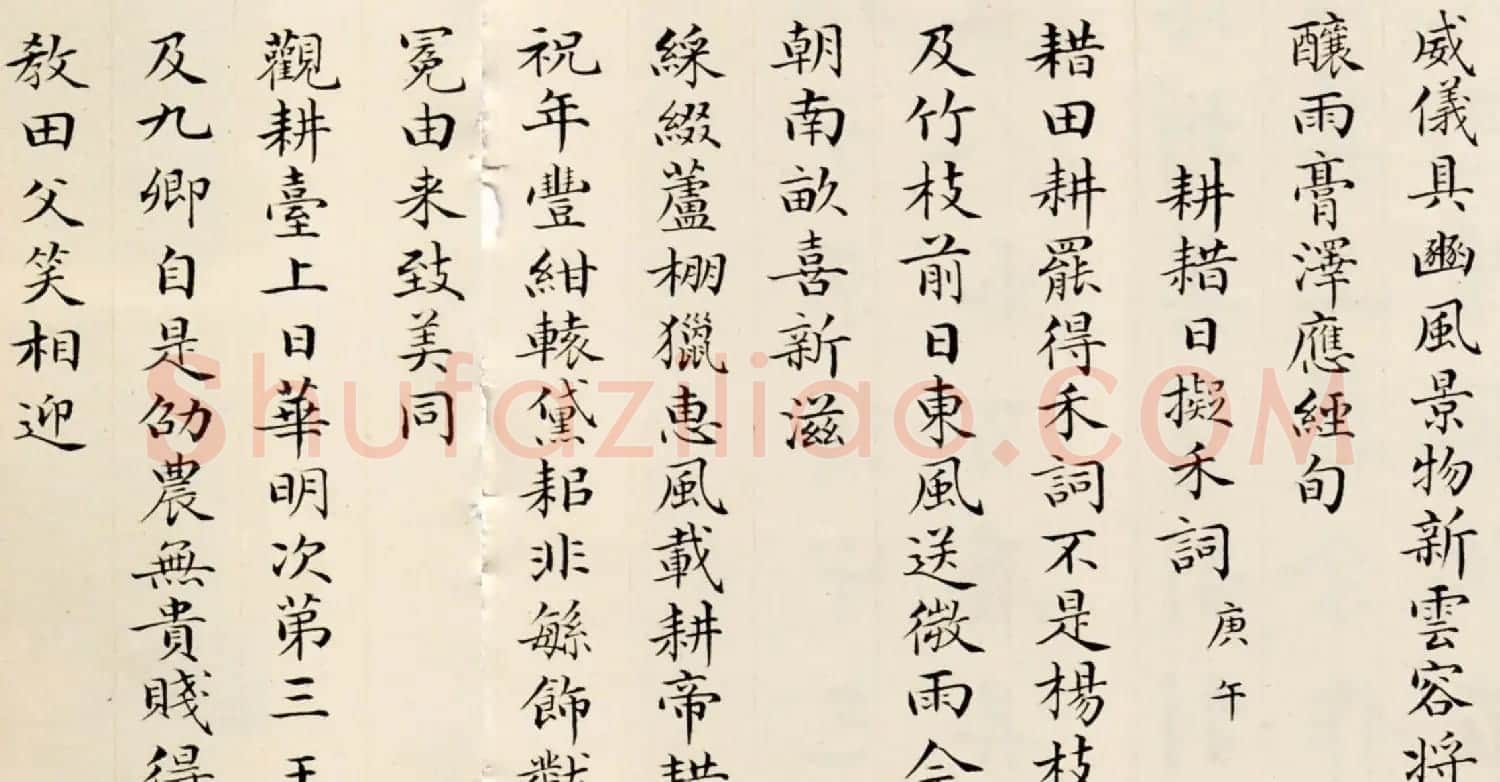 威儀具豳風景物新雲容将
釀雨膏澤應經旬
耕耤日擬禾詞 庚午
耤田耕罷得禾詞不是楊枝
及竹枝前日東風送微雨今
朝南畝喜新滋
綵綴蘆棚獵惠風載耕帝耤
祝年豐紺轅黛耜非緐飾黻
冕由来致美同
觀耕臺上日華明次第三王
及九卿自是劭農無貴賤得
教田父笑相迎
Shufaziliao.COM